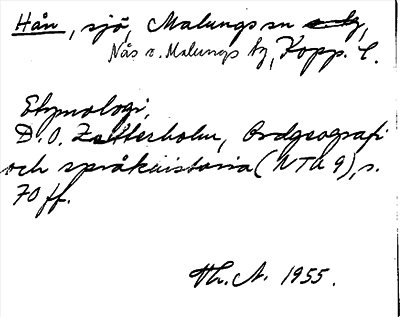 Hån, sjö, Malungs sn
Nås o. Malungs tg, Kopp. l.
Etymologi,
D. O. Zetterholm, Ordgeografi
och språkhistoria (NTU 9), s.
70 ff.
Th. A. 1955.